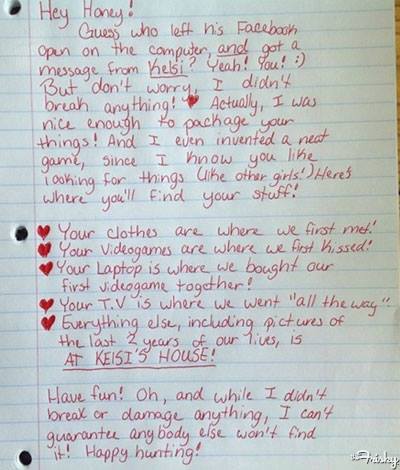 Hey Honey!
Guess who left his Facebook
open on the computer, and got a
message from Kelsi? Yeah! You! :)
But don't worry, I didn't
break anything! ♥ Actually, I was
nice enough to package your
things! And I even invented a neat
game, since I know you like
looking for things (like other girls!) Here's
where you'll find your stuff!
♥ Your clothes are where we first met!
♥ Your Videogames are where we first Kissed!
♥ Your Laptop is where we bought our
first videogame together!
♥ Your T.V is where we went "all the way".
♥ Everything else, including pictures of
the last 2 years of our lives, is
AT KElSI'S HOUSE!
Have fun! Oh, and while I didn't
break or damage anything, I can't
guarantee anybody else won't find
it! Happy hunting!
the Frisky